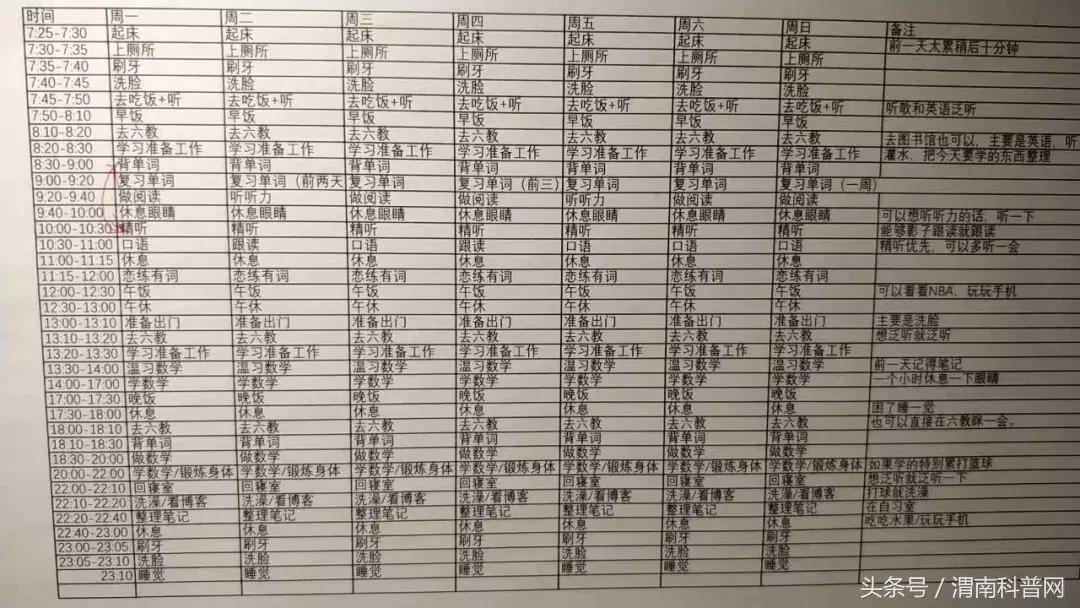 时间 周一 周二 周三 周四 周五 周六 周日 备注
7:25-7:30 起床 起床 起床 起床 起床 起床 起床 前一天太累稍后十分钟
7:30-7:35 上厕所 上厕所 上厕所 上厕所 上厕所 上厕所 上厕所
7:35-7:40 刷牙 刷牙 刷牙 刷牙 刷牙 刷牙 刷牙
7:40-7:45 洗脸 洗脸 洗脸 洗脸 洗脸 洗脸 洗脸
7:45-7:50 去吃饭+听 去吃饭+听 去吃饭+听 去吃饭+听 去吃饭+听 去吃饭+听 去吃饭+听 听歌和英语泛听
7:50-8:10 早饭 早饭 早饭 早饭 早饭 早饭 早饭
8:10-8:20 去六教 去六教 去六教 去六教 去六教 去六教 去六教 去图书馆也可以，主要是英语，听
8:20-8:30 学习准备工作 学习准备工作 学习准备工作 学习准备工作 学习准备工作 学习准备工作 学习准备工作 灌水，把今天要学的东西整理
8:30-9:00 背单词 背单词 背单词 背单词 背单词 背单词 背单词
9:00-9:20 复习单词 复习单词（前两天 复习单词 复习单词（前三） 复习单词 复习单词 复习单词（一周）
9:20-9:40 做阅读 听听力 做阅读 做阅读 听听力 做阅读 做阅读
9:40-10:00 休息眼睛 休息眼睛 休息眼睛 休息眼睛 休息眼睛 休息眼睛 休息眼睛 可以想听听力的话，听一下
10:00-10:30 精听 精听 精听 精听 精听 精听 精听 能够影子跟读就跟读
10:30-11:00 口语 跟读 口语 跟读 口语 口语 口语 精听优先，可以多听一会
11:00-11:15 休息 休息 休息 休息 休息 休息 休息
11:15-12:00 恋练有词 恋练有词 恋练有词 恋练有词 恋练有词 恋练有词 恋练有词
12:00-12:30 午饭 午饭 午饭 午饭 午饭 午饭 午饭 可以看看NBA，玩玩手机
12:30-13:00 午休 午休 午休 午休 午休 午休 午休
13:00-13:10 准备出门 准备出门 准备出门 准备出门 准备出门 准备出门 准备出门 主要是洗脸
13:10-13:20 去六教 去六教 去六教 去六教 去六教 去六教 去六教 想泛听就泛听
13:20-13:30 学习准备工作 学习准备工作 学习准备工作 学习准备工作 学习准备工作 学习准备工作 学习准备工作
13:30-14:00 温习数学 温习数学 温习数学 温习数学 温习数学 温习数学 温习数学 前一天记得笔记
14:00-17:00 学数学 学数学 学数学 学数学 学数学 学数学 学数学 一个小时休息一下眼睛
17:00-17:30 晚饭 晚饭 晚饭 晚饭 晚饭 晚饭 晚饭
17:30-18:00 休息 休息 休息 休息 休息 休息 休息 困了睡一觉
18:00-18:10 去六教 去六教 去六教 去六教 去六教 去六教 去六教 也可以直接在六教眯一会。
18:10-18:30 背单词 背单词 背单词 背单词 背单词 背单词 背单词
18:30-20:00 做数学 做数学 做数学 做数学 做数学 做数学 做数学
20:00-22:00 学数学/锻炼身体 学数学/锻炼身体 学数学/锻炼身体 学数学/锻炼身体 学数学/锻炼身体 学数学/锻炼身体 学数学/锻炼身体 如果学的特别累打篮球
22:00-22:10 回寝室 回寝室 回寝室 回寝室 回寝室 回寝室 回寝室 想泛听就泛听一下
22:10-22:20 洗澡/看博客 洗澡/看博客 洗澡/看博客 洗澡/看博客 洗澡/看博客 洗澡/看博客 洗澡/看博客 打球就洗澡
22:20-22:40 整理笔记 整理笔记 整理笔记 整理笔记 整理笔记 整理笔记 整理笔记 在自习室
22:40-23:00 休息 休息 休息 休息 休息 休息 休息 吃吃水果/玩玩手机
23:00-23:05 刷牙 刷牙 刷牙 刷牙 刷牙 刷牙 刷牙
23:05-23:10 洗脸 洗脸 洗脸 洗脸 洗脸 洗脸 洗脸
23:10 睡觉 睡觉 睡觉 睡觉 睡觉 睡觉 睡觉
头条号／渭南科普网